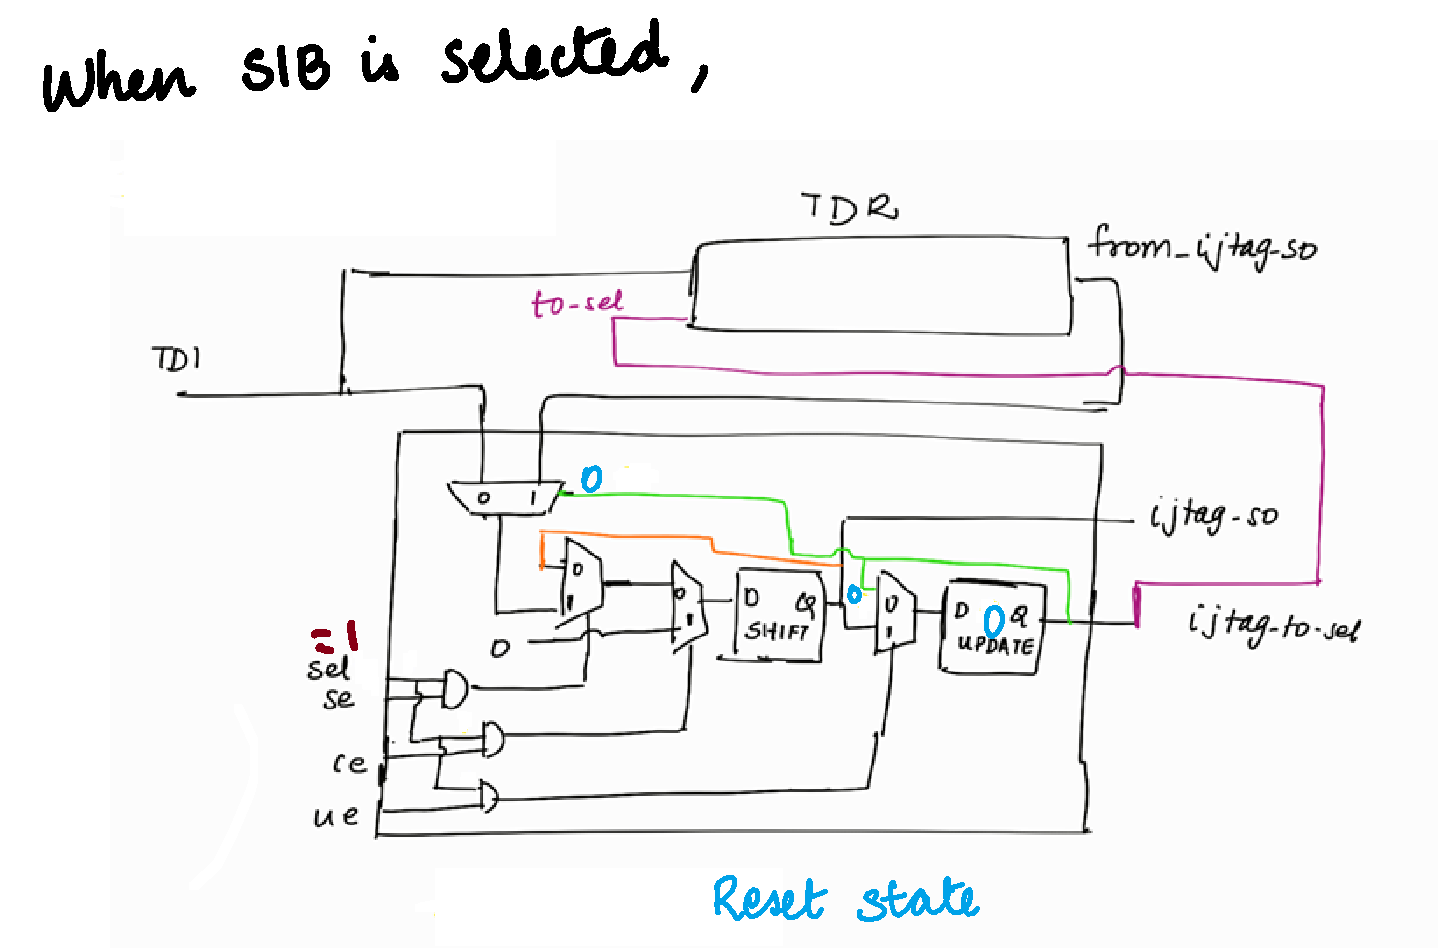 When SIB is selected,
TDR
from_ijtag-so
to-sel
TDI
0 1 0
ijtag-so
0
1
0
1
0
D Q
SHIFT
0
0
1
D 0 Q
UPDATE
ijtag-to-sel
=1
sel
se
ce
ue
Reset state